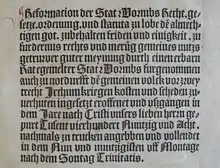 Reformation der Stat Wormbs Recht, ge-
setze, ordenung, vnd statuta zu lobe dē almechti-
gen got. zubehalten friden vnd einigkeit, zu
furdernus rechts vnd merūg gemeines nutzs
getruwer guter meynung durch einen erbarn
Rat gemelter Stat Wormbs furgenommen
auch zu nordurft dē gemeinen volck vor zwey
recht irer kriegung kosten vnd scheden zu-
uerhuten ingesetzt eroffenet vnd vßgangen in
dem Jare nach Cristi unsers lieben herren ge-
purt Tusent vierhundert Nuntzig vnd Acht.
nachmals zu trucken angeben vnd vollendet
in dem Nun vnd nuntzigisten vff Montag
nach dem Sontag Trinitatis.